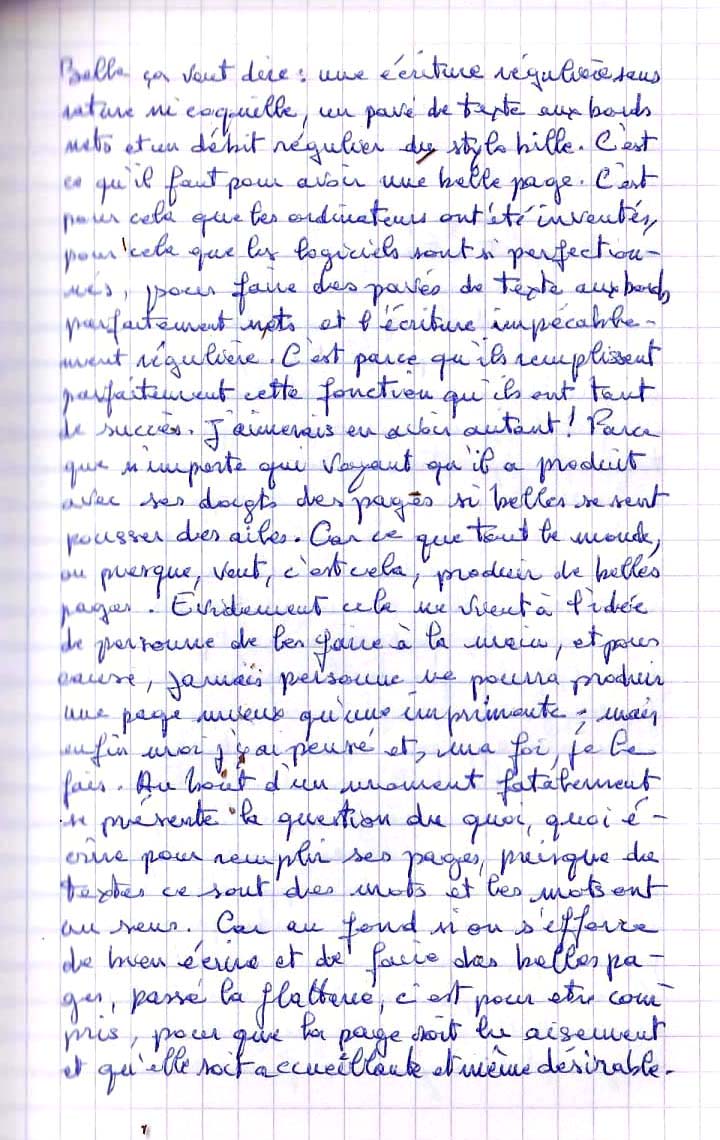 Belle ça veut dire : une écriture régulière sans
rature ni coquille, un pavé de texte aux bords
nets et un débit régulier du stylo bille. C'est
ce qu'il faut pour avoir une belle page. C'est
pour cela que les ordinateurs ont été inventés,
pour cela que les logiciels sont si perfection-
nés, pour faire des pavés de texte aux bords
parfaitement nets et l'écriture impécable-
ment régulière. C'est parce qu'ils remplissent
parfaitement cette fonction qu'ils ont tant
de succès. J'aimerais en avoir autant ! Parce
que n'importe qui voyant qu'il a produit
avec ses doigts des pages si belles se sent
pousser des ailes. Car ce que tout le monde,
ou presque, veut, c'est cela, produire de belles
pages. Evidement cela ne vient à l'idée
de personne de les faire à la main, et pour
cause, jamais personne ne pourra produire
une page mieux qu'une imprimante ; mais
enfin moi j'y ai pensé et, ma foi, je le
fais. Au bout d'un moment fatalement
se présente la question du quoi, quoi é-
crire pour remplir ses pages, puisque du
textes ce sont des mots et les mots ont
un sens. Car au fond si on s'efforce
de bien écrire et de faire des belles pa-
ges, passé la flatterie, c'est pour etre com
pris, pour que la page soit lu aisement
et qu'elle soit accueillante et même désirable.